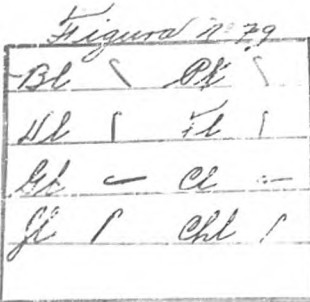 Figura Nº 79
Bl Pl
Dl Fl
Gl Cl
Jl Chl